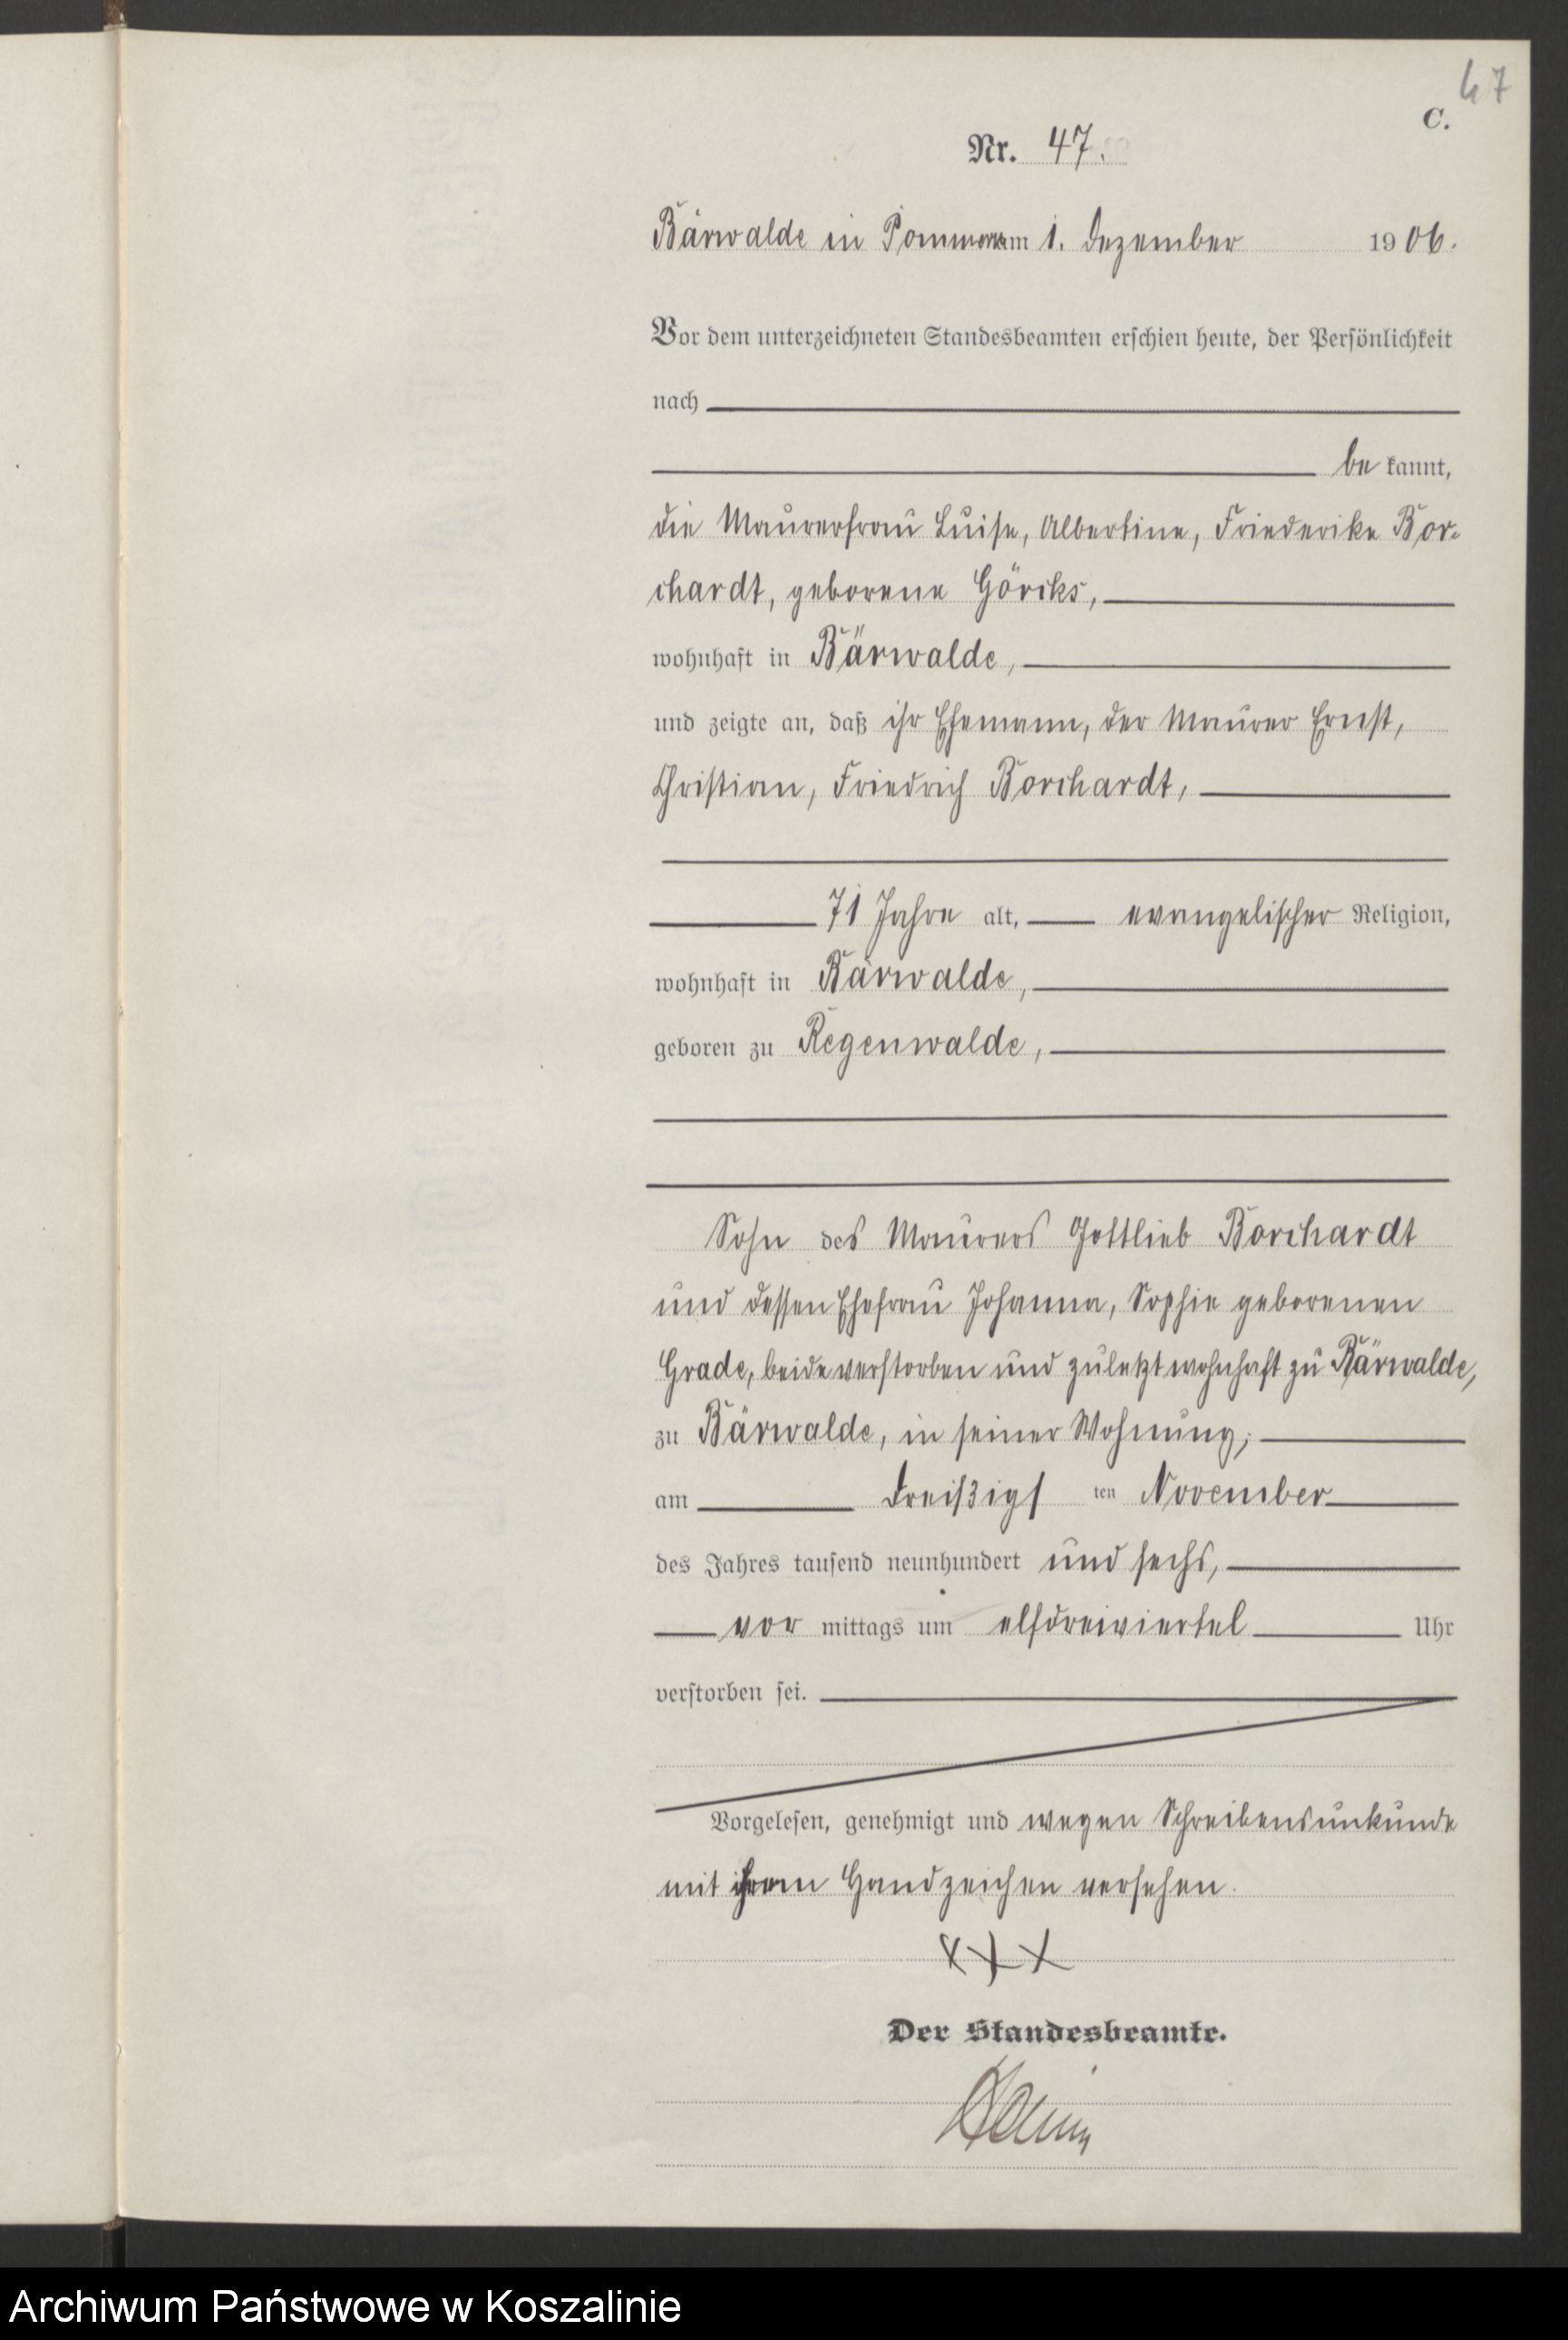 47
C.
Nr. 47.
Bärwalde in Pommern am 1. Dezember 1906.
Vor dem unterzeichneten Standesbeamten erschien heute, der Persönlichkeit
nach
be kannt,
die Maurerfrau Luise, Albertine, Friederike Bor-
chardt, geborene Görcks,
wohnhaft in Bärwalde,
und zeigte an, daß ihr Ehemann, der Maurer Ernst,
Christian, Friedrich Borchardt,
71 Jahre alt, evangelischer Religion,
wohnhaft in Bärwalde,
geboren zu Regenwalde,
Sohn des Maurers Gottlieb Borchardt
und dessen Ehefrau Johanna, Sophie geborenen
Grade, beide verstorben und zuletzt wohnhaft zu Bärwalde,
zu Bärwalde, in seiner Wohnung,
am dreißigs ten November
des Jahres tausend neunhundert und sechs,
vor mittags um elfdreiviertel Uhr
verstorben sei.
Vorgelesen, genehmigt und wegen Schreibensunkunde
mit ihrem Handzeichen versehen.
XXX
Der Standesbeamte.
Archiwum Państwowe w Koszalinie